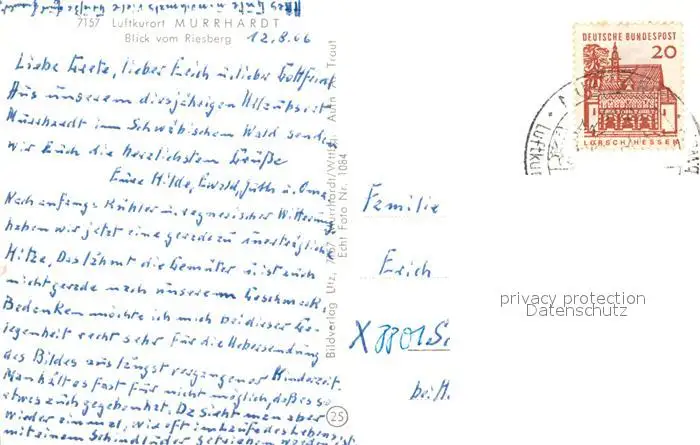 7157 Luftkurort MURRHARDT
Blick vom Riesberg 12.8.66
Liebe Grete, lieber Erich u. lieber Gottfried
Aus unserem diesjährigen Urlaubsort
Murrhardt im Schwäbischen Wald senden
wir Euch die herzlichsten Grüße
Eure Hilde, Ewald, Juth u. Oma
Nach anfangs kühler u. regnerischer Witterung
haben wir jetzt eine geradezu unerträgliche
Hitze. Das lähmt die Gemüter u. ist auch
nicht gerade nach unserem Geschmack.
Bedanken möchte ich mich bei dieser Ge-
legenheit recht sehr für die Uebersendung
des Bildes aus längst vergangener Kinderzeit.
Man hält es fast für nicht möglich, daß es so
etwas auch gegeben hat. Da sieht man aber
wieder einmal, wie oft im Laufe des Lebens
mit einem Schindluder getrieben werden
Bildverlag Utz, 7157 Murrhardt/Wttbg. Aufn. A. Traut
Echt Foto Nr. 1084
25
DEUTSCHE BUNDESPOST
20
LORSCH/HESSEN
Luftkur
Familie
Erich
X 8801
bei
privacy protection
Datenschutz